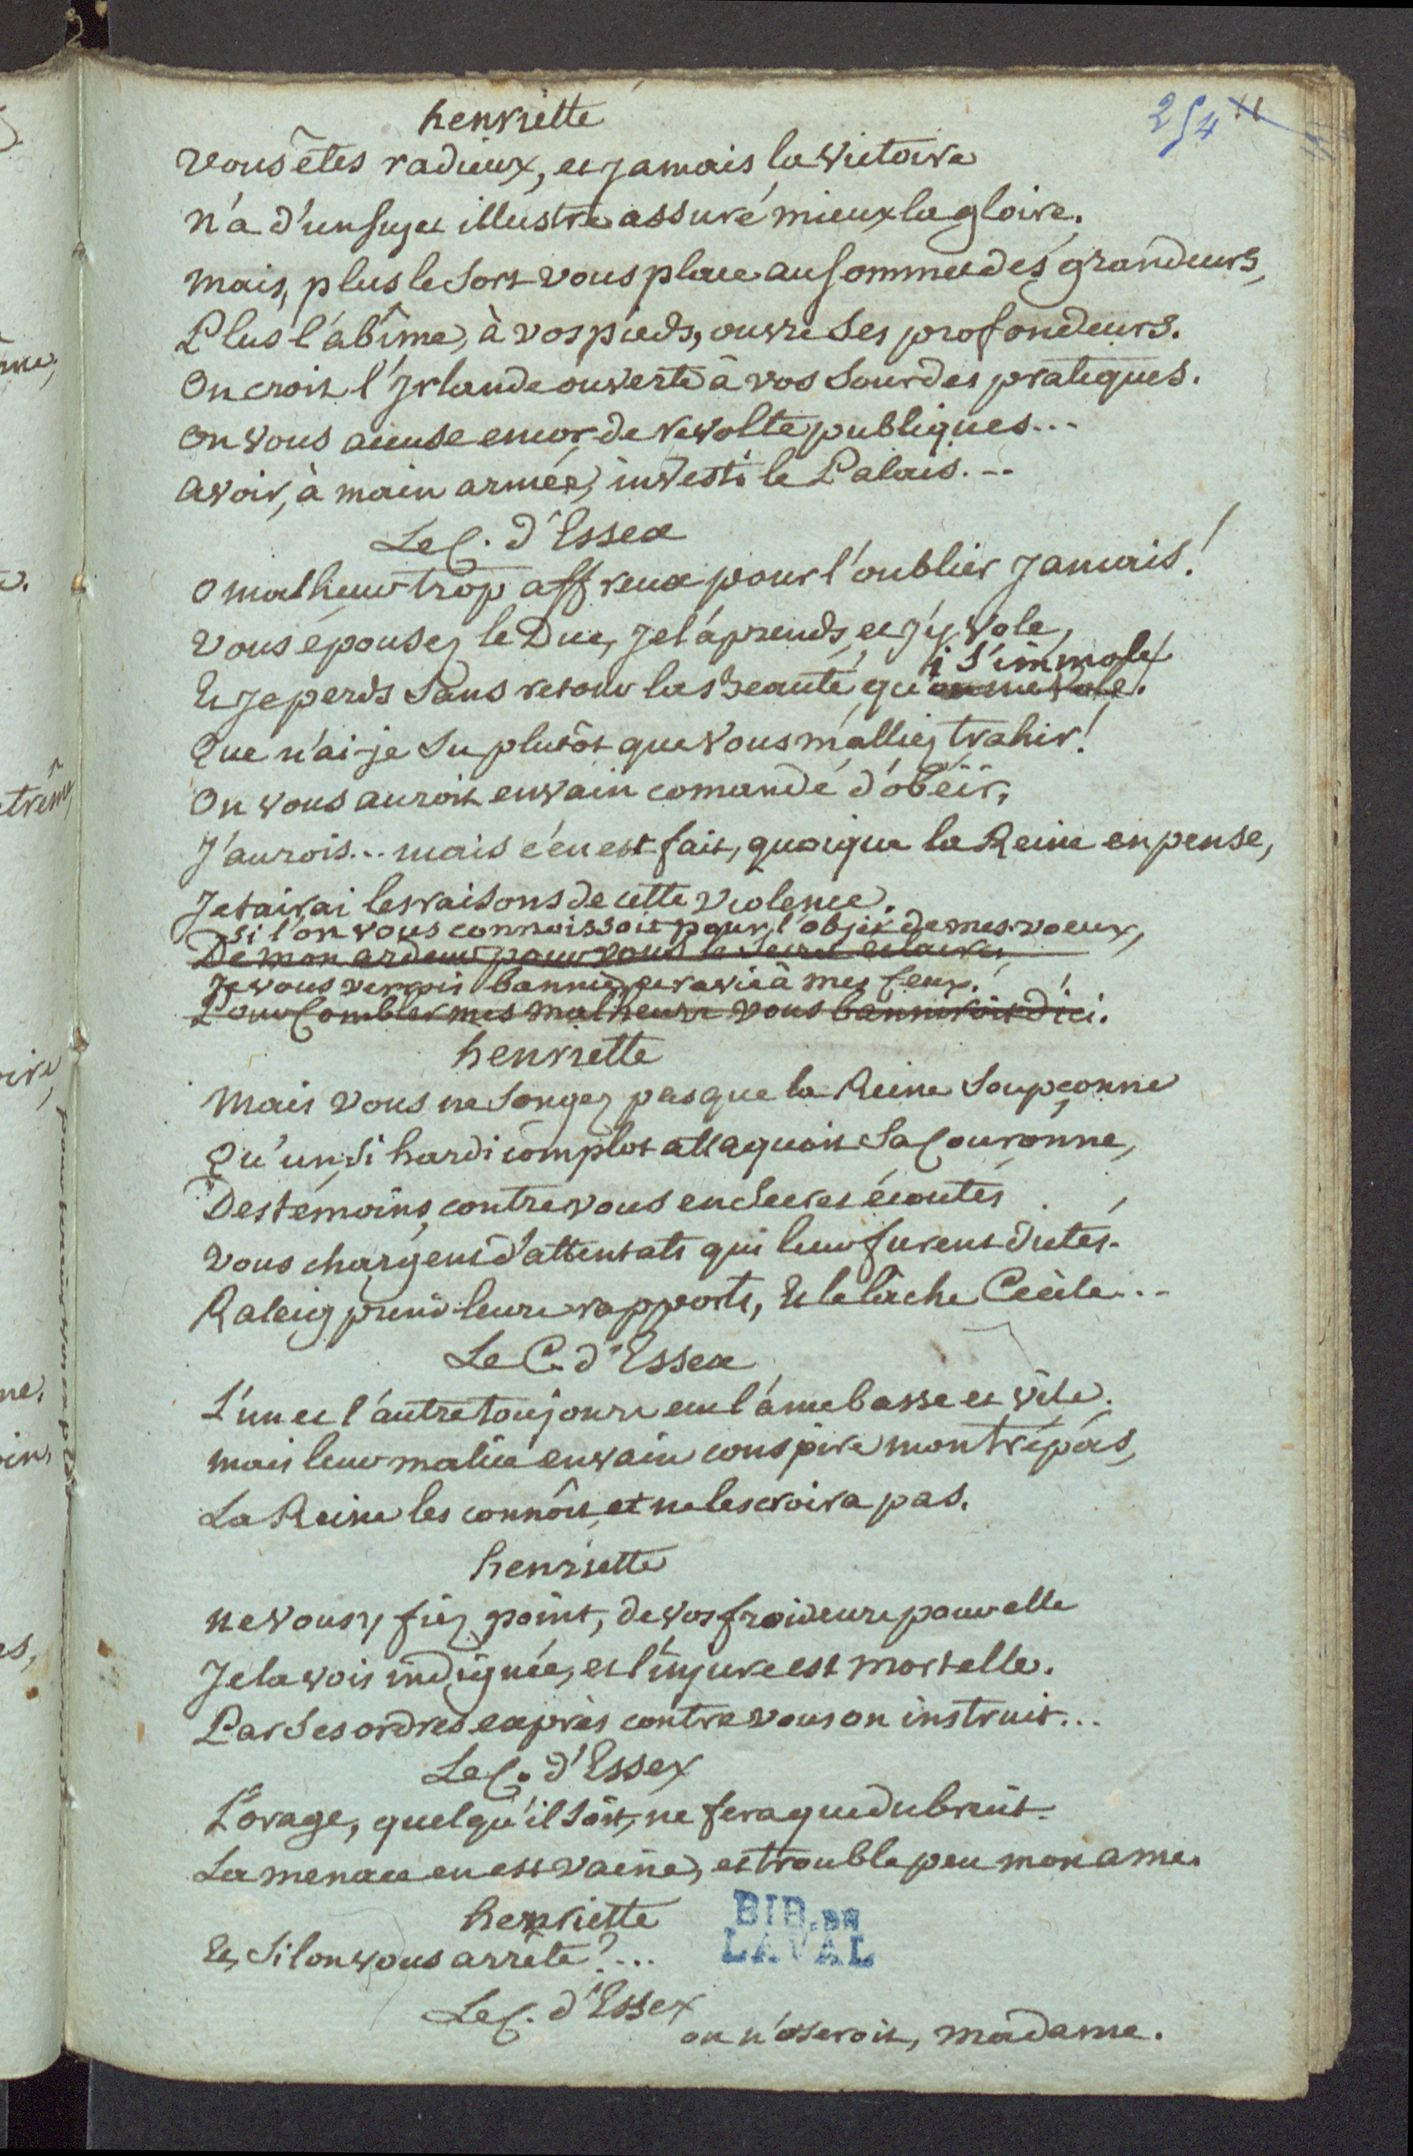 254
henriette
vous êtes radieux, et jamais la victoire
n'a d'un sujet illustre assuré mieux la gloire.
mais, plus le sort vous place au sommet des grandeurs,
Plus l'abîme, à vos pieds, ouvre ses profondeurs.
On croit l'Irlande ouverte à vos sourdes pratiques.
on vous acuse encor de revolte publiques...
avoir, à main armée, investi le Palais...
Le C. d'Essex
o malheur trop affreux pour l'oublier jamais!
vous épousez le Duc, je l'áprends, et j'y vole,
i s'immole
Et je perds sans retour la beauté, qu'on me vole.
Que n'ai-je su plutôt que vous m'alliez trahir!
On vous auroit envain comandé d'obéir,
J'aurois... mais c'en est fait, quoique la Reine en pense,
Je tairai les raisons de cette violence.
si l'on vous connoissoit pour l'objet de mes voeux,
De mon ardeur pour vous le secret eclairci
Je vous verrois bannie, et ravie à mes feux!
Pour combler mes malheurs vous banniroit d'ici.
henriette
Mais vous ne songez pas que la Reine soupçonne
Qu'un si hardi complot attaquoit sa couronne,
Des témoins contre vous en secret écoutés
vous chargent d'attentats qui leur furent dictés.
Raleig prend leurs rapports, Et le lâche Cécile...
Le C. d'Essex
L'un et l'autre toujours eut l'áme basse et vile.
mais leur malice envain conspire mon trépas,
La Reine les connôit, et ne les croira pas.
henriette
ne vous y fiez point, de vos froideurs pour elle
Je la vois indignée, et l'injure est mortelle.
Par ses ordres exprès contre vous on instruit...
Le C. d'Essex
L'orage, quelqu'il soit, ne fera que du bruit.
La menace en est vaine, et trouble peu mon ame.
henriette
Et, si l'on vous arrete?...
BIB. DE
LAVAL
Le C. d'Essex
on n'oseroit, madame.